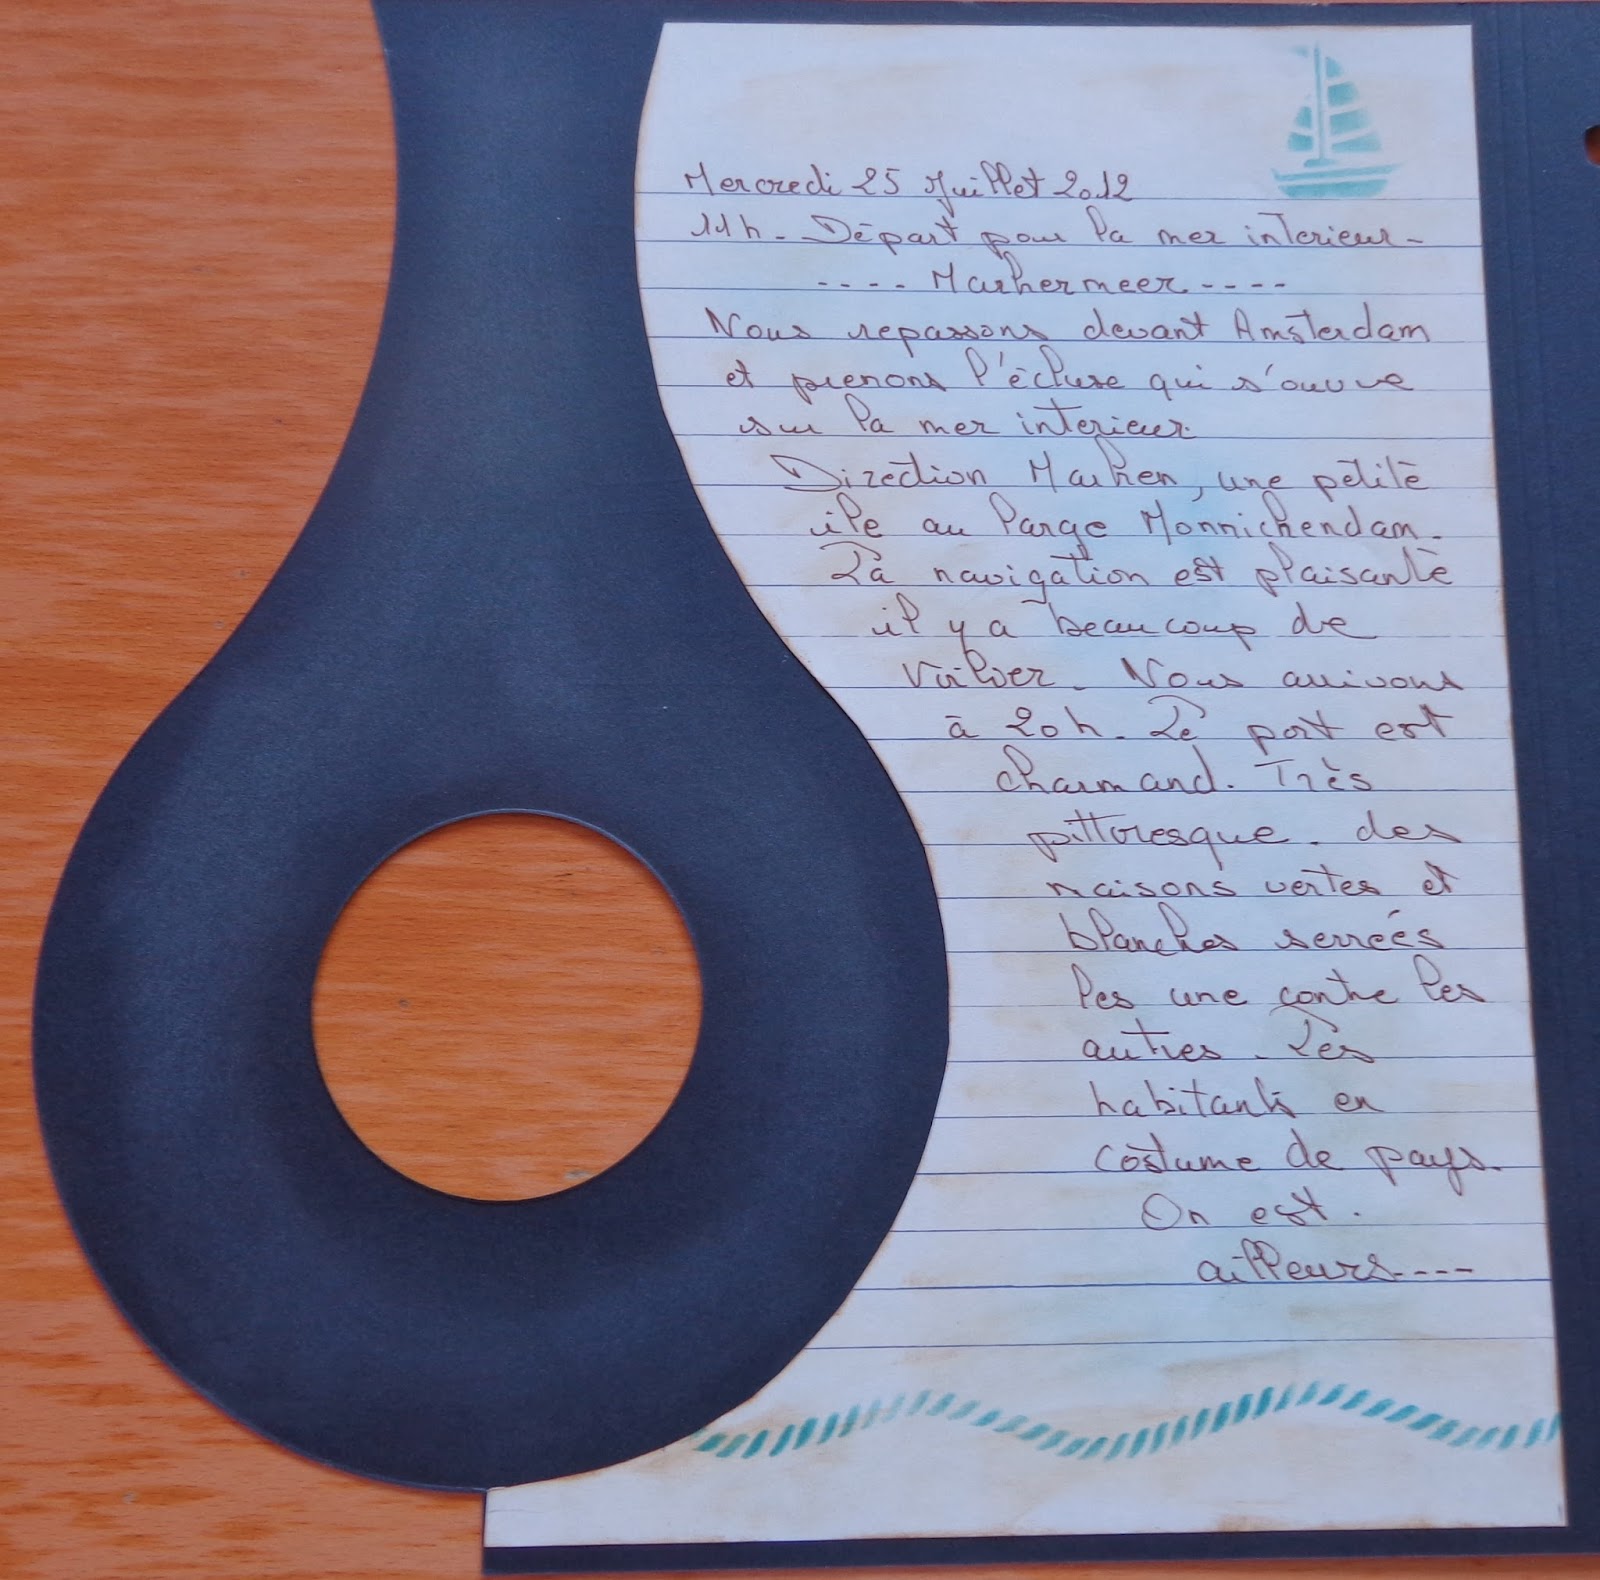 Mercredi 25 Juillet 2012
11h. Départ pour la mer interieur -
---- Markermeer ----
Nous repassons devant Amsterdam
et prenons l'écluse qui s'ouvre
sur la mer interieur.
Direction Marken, une petite
ile au large Monnichendam.
La navigation est plaisante
il y a beaucoup de
Voilier. Nous arrivons
à 20h. Le port est
charmand. Très
pittoresque. des
maisons vertes et
blanches serrées
les une contre les
autres. Les
habitants en
costume de pays.
On est.
ailleurs----